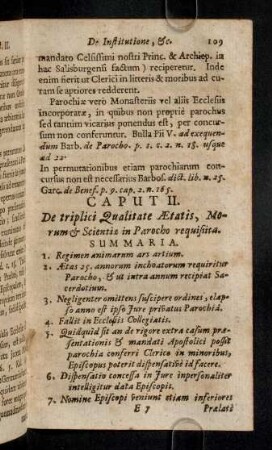 De Institutione, &c. 109
mandato Celsissimi nostri Princ. & Archiep. in
hac Salisburgensi factum) reciperetur. Inde
enim fierit ut Clerici in litteris & moribus ad cu-
ram se aptiores redderent.
Parochiæ verò Monasteriis vel aliis Ecclesiis
incorporatæ, in quibus non propriè parochus
sed tantùm vicarius ponendus est, per concur-
sum non conferuntur. Bulla Pii V. ad exequen-
dum Barb. de Parocho. p. 1. c. 2. n. 18. usque
ad 22.
In permutationibus etiam parochiarum con-
cursus non est necessarius Barbos. dict. lib. n. 25.
Garc. de Benef. p. 9. cap. 2. n. 165.
CAPUT II.
De triplici Qualitate Ætatis, Mo-
rum & Scientia in Parocho requisita.
SUMMARIA.
1. Regimen animarum ars artium.
2. Ætas 25. annorum inchoatorum requiritur
Parocho, & ut intra annum recipiat Sa-
cerdotium.
3. Negligenter omittens suscipere ordines, elap-
so anno est ipso Jure privatus Parochiâ.
4. Fallit in Ecclesiis Collegiatis.
5. Quidquid sit an de rigore extra casum præ-
sentationis & mandati Apostolici possit
parochia conferri Clerico in minoribus,
Episcopus poterit dispensativè id facere.
6. Dispensatio concessa in Jure inpersonaliter
intelligitur data Episcopis.
7. Nomine Episcopi veniunt etiam inferiores
E 7 Prælati